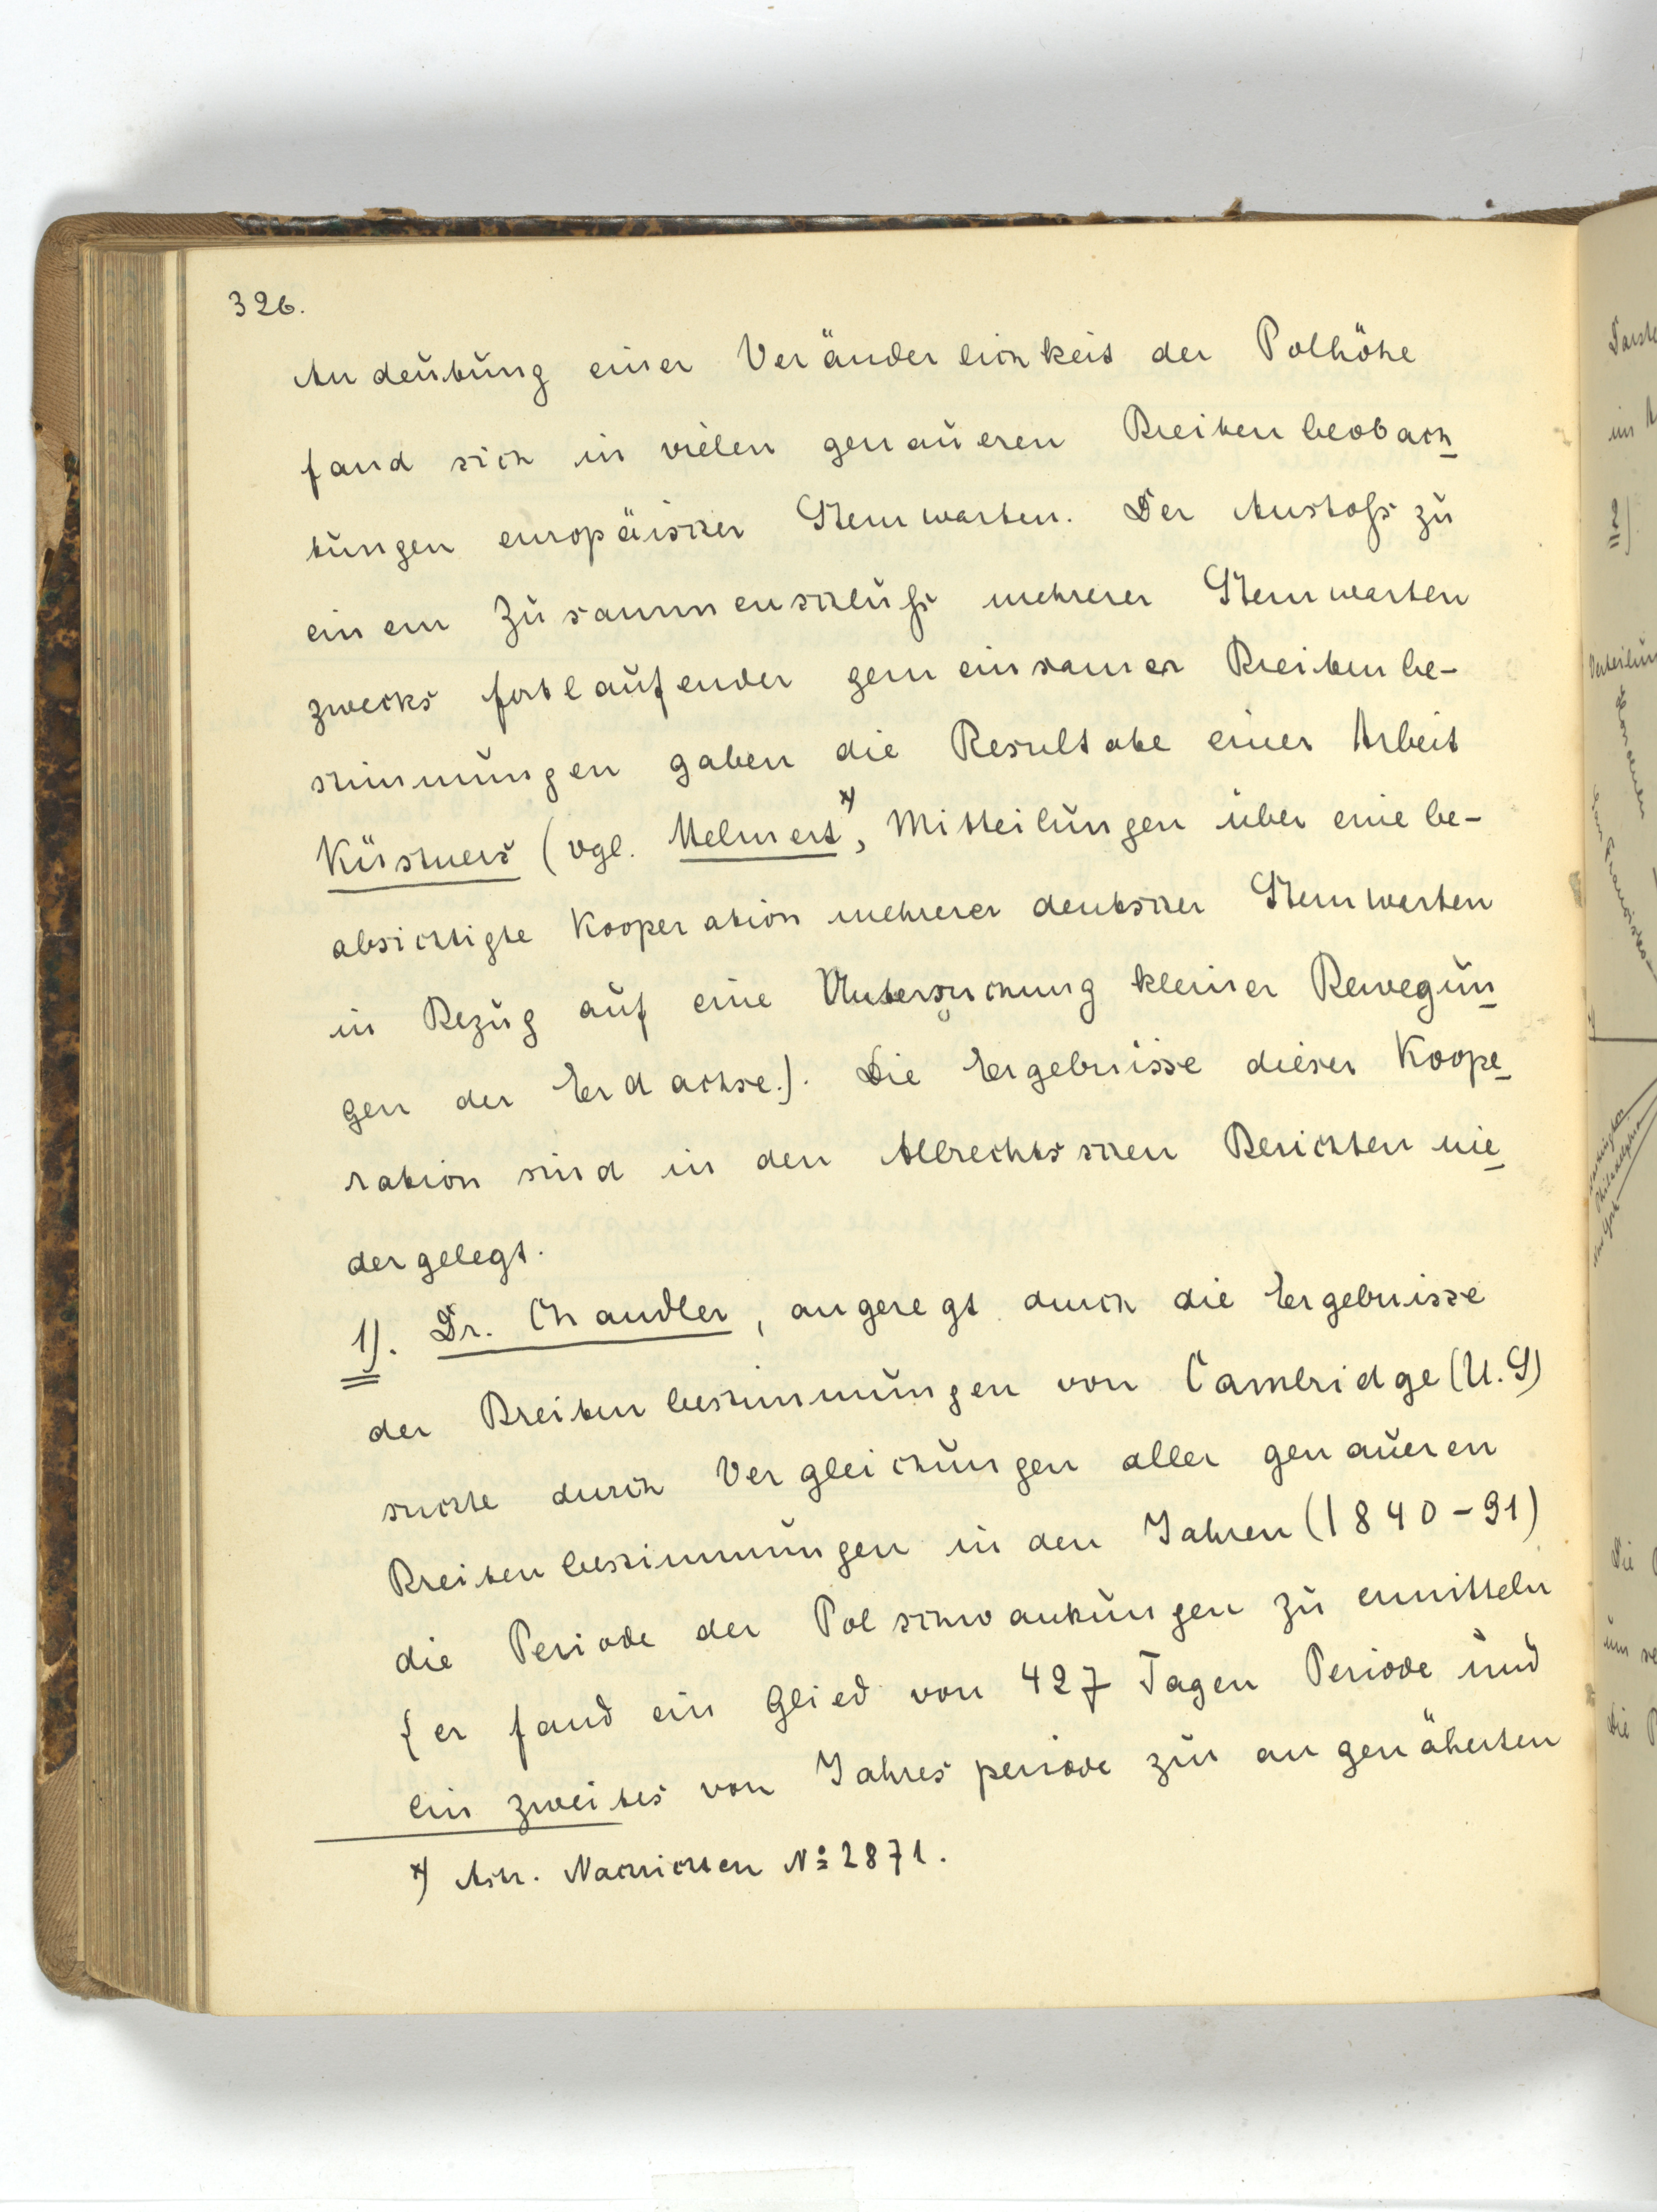 326.
Andeutung einer Veränderlichkeit der Polhöhe
fand sich in vielen genaueren Breitenbeobach-
tungen europäischer Sternwarten. Der Anstoß zu
einem Zusammenschluß mehrerer Sternwarten
zwecks fortlaufender gemeinsamer Breitenbe-
stimmungen gaben die Resultate einer Arbeit
Küstners (vgl. Helmert *), Mitteilungen über eine be-
absichtigte Kooperation mehrerer deutscher Sternwarten
in Bezug auf eine Untersuchung kleiner Bewegun-
gen der Erdachse.). Die Ergebnisse dieser Koope-
ration sind in den Albrechtsschen Berichten nie-
dergelegt.
1). Dr. Chandler, angeregt durch die Ergebnisse
der Breitenbestimmungen von Cambridge (U.S)
suchte durch Vergleichungen aller genaueren
Breitenbestimmungen in den Jahren (1840-91)
die Periode der Polschwankungen zu ermitteln
{er fand ein Glied von 427 Tagen Periode und
ein zweites von Jahresperiode zur angenäherten
*) Astr. Nachrichten No 2871.
2)
Die
Die
Washington
Philadelphia
New York
San Francisco